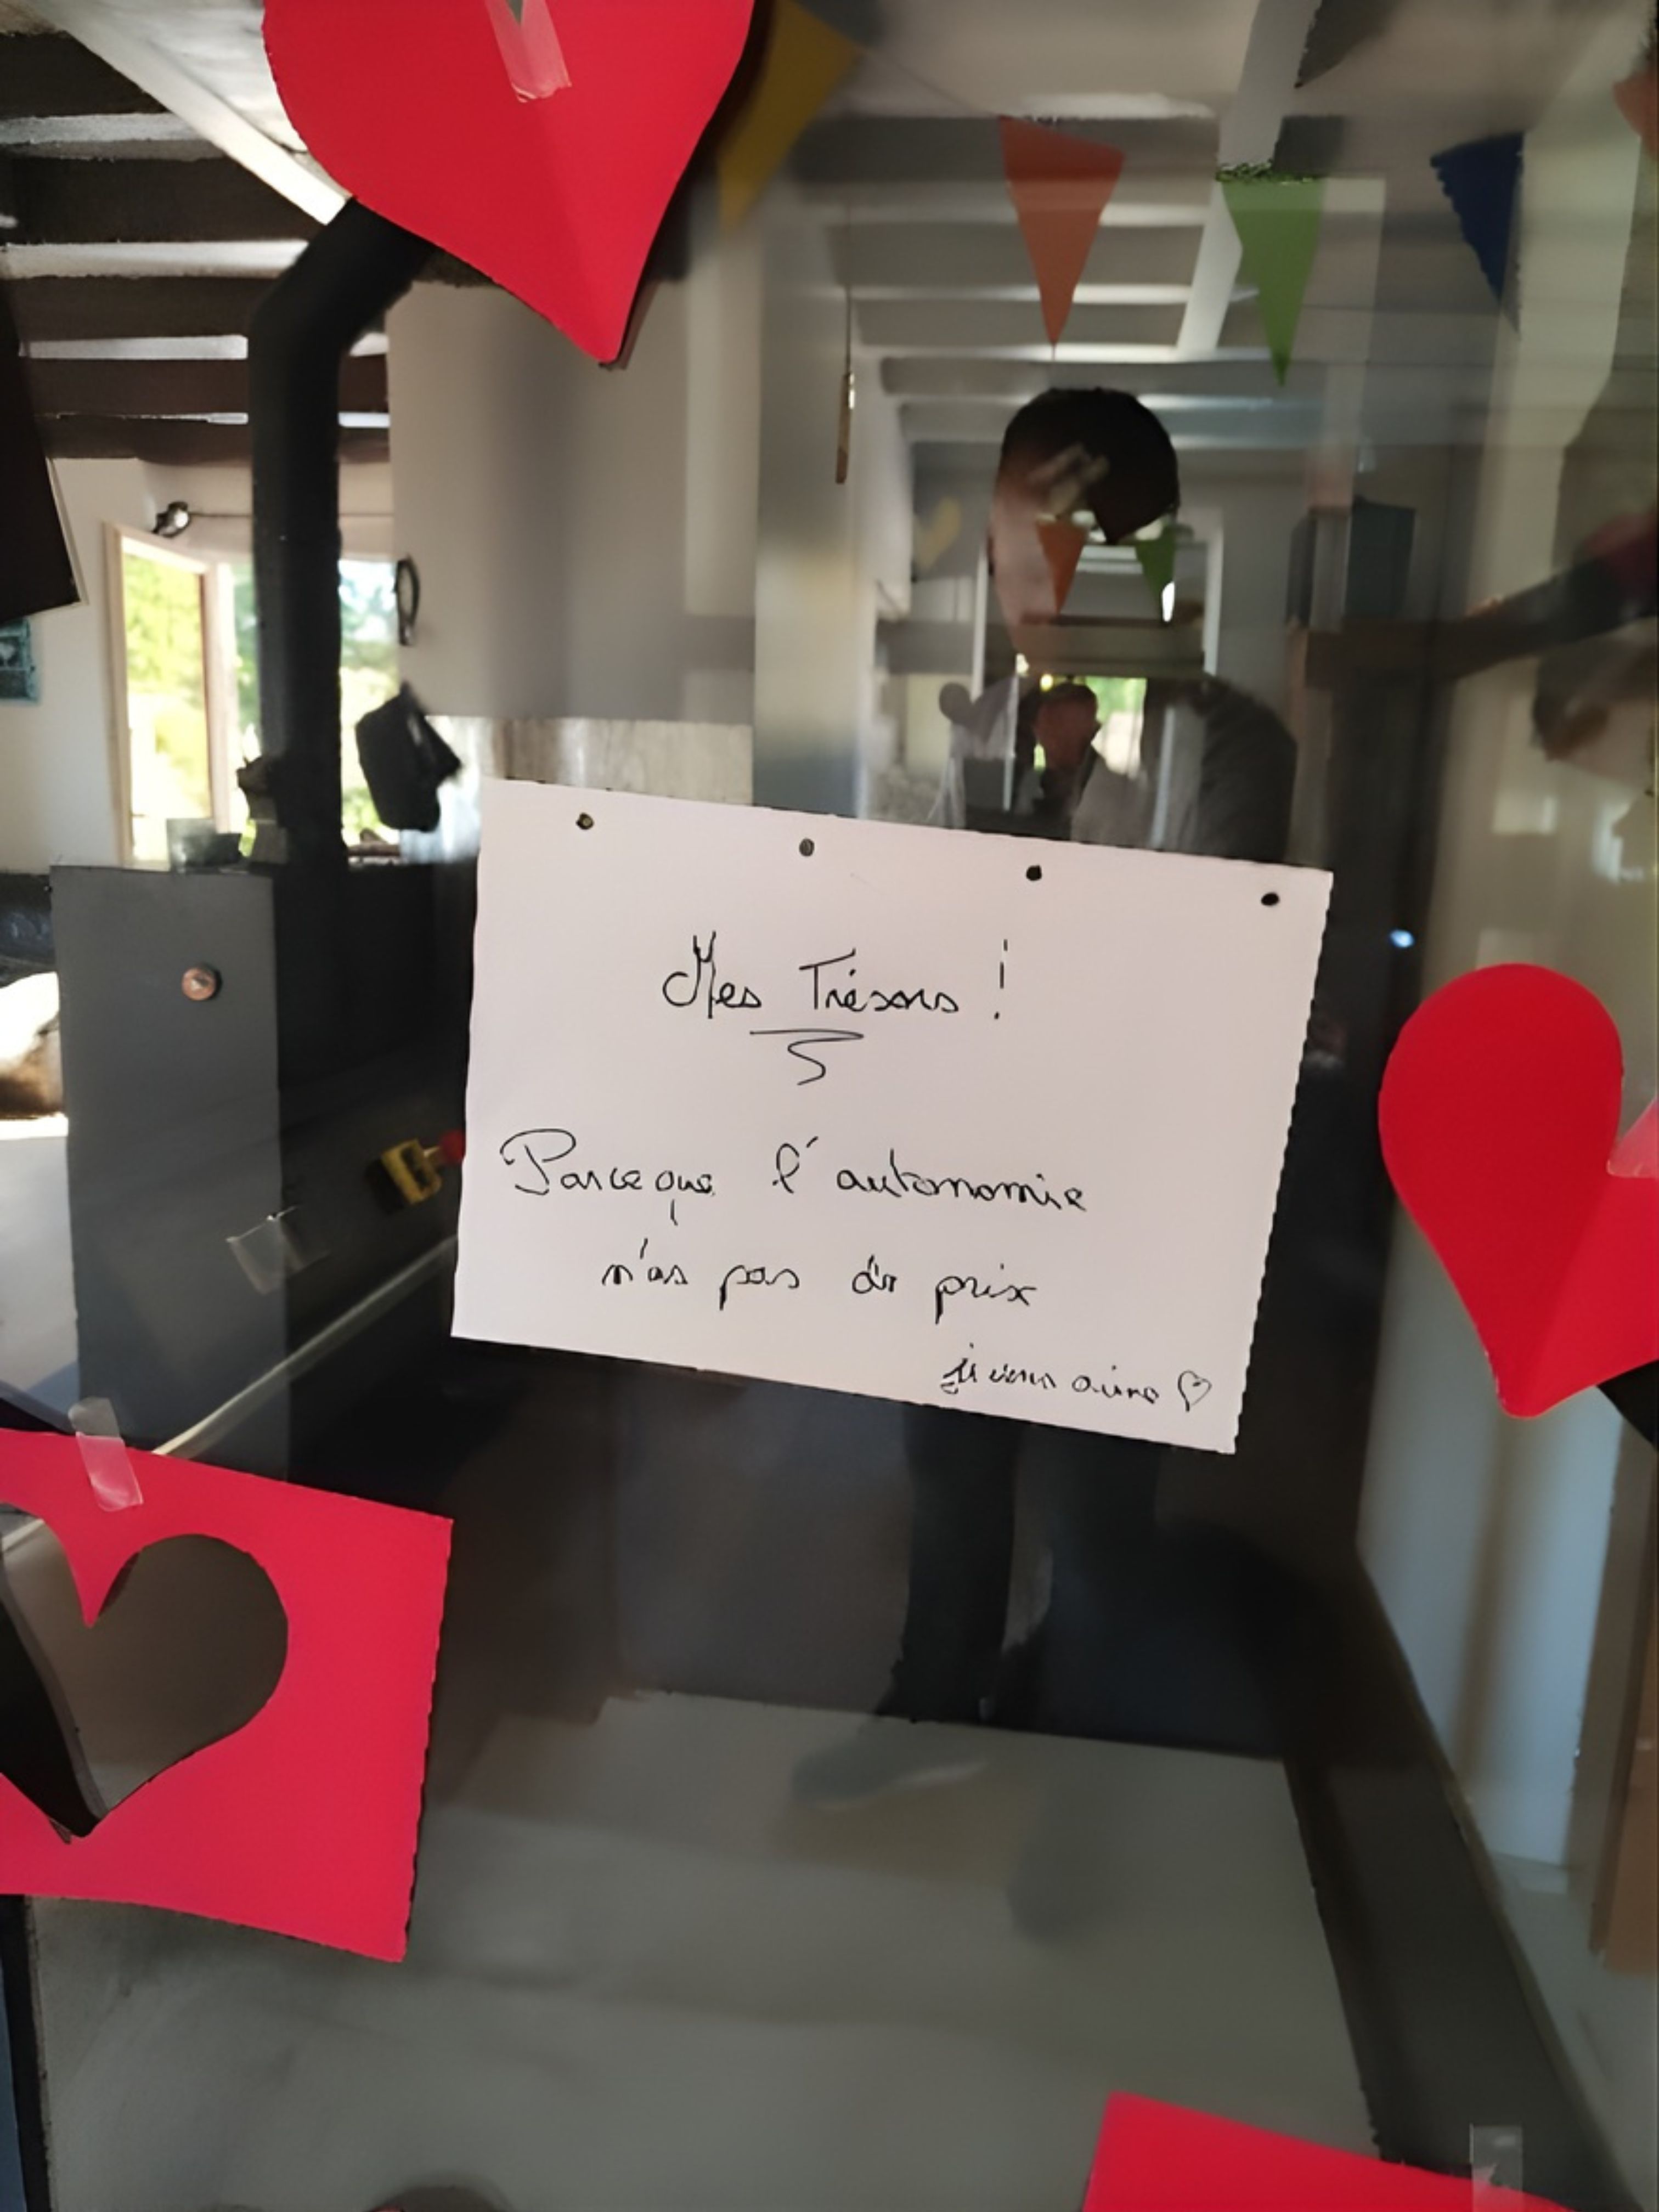 Mes Trésors !
Parceque l'autonomie
n'as pas de prix
je vous aime ♡